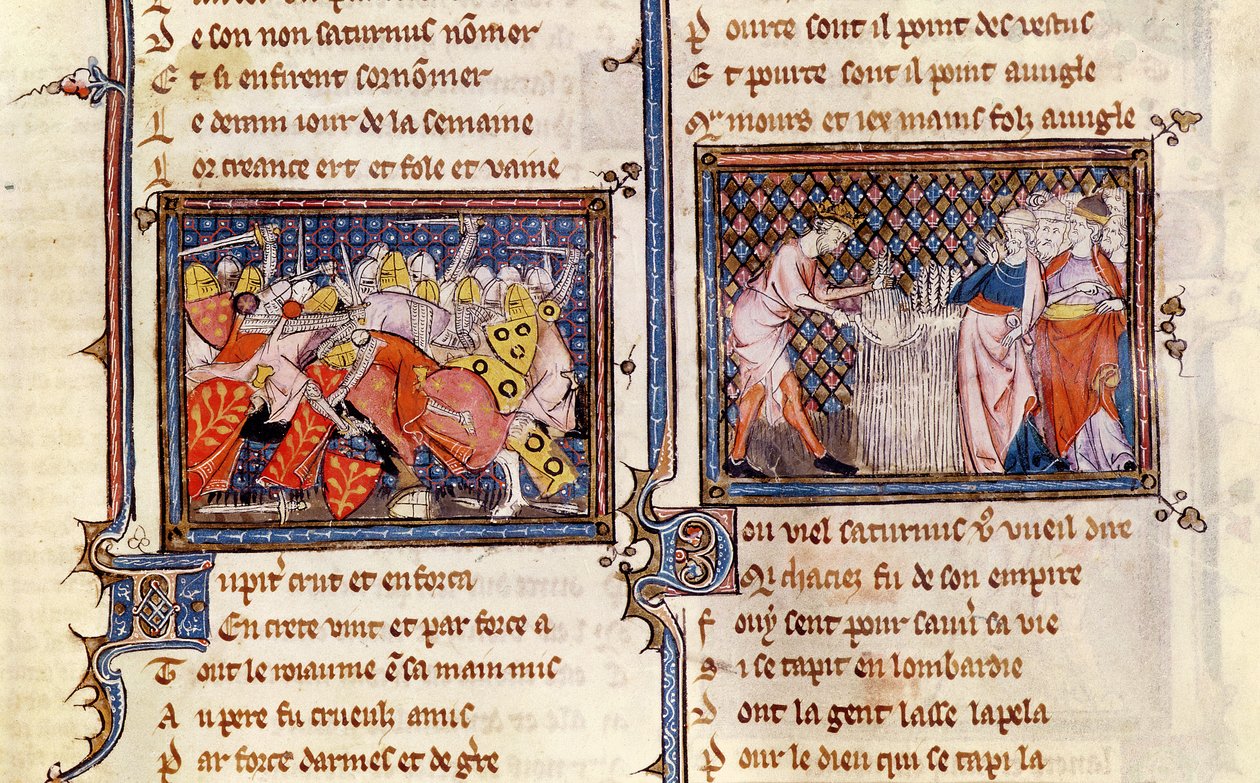 D e son non saturnus nōmer
E t si en firent sornōmer
L e derrain iour de la semaine
L or creance ert et fole et vaine
I upit̉ crut et enforca
En crete vint et par force a
T out le roiaume ē sa main mis
A u pere fu crueulz amis
P ar force darmes et de gr̉re
P ource sont il point des vestus
E t pource sont il point auugle
mours et iex mains folz auugle
D ou viel saturnus vueil dire
Qui chaciez fu de son empire
F ouy sent pour sauủ sa vie
S i se tapit en lombardie
D ont la gent lasse lapela
P our le dieu qui se tapi la